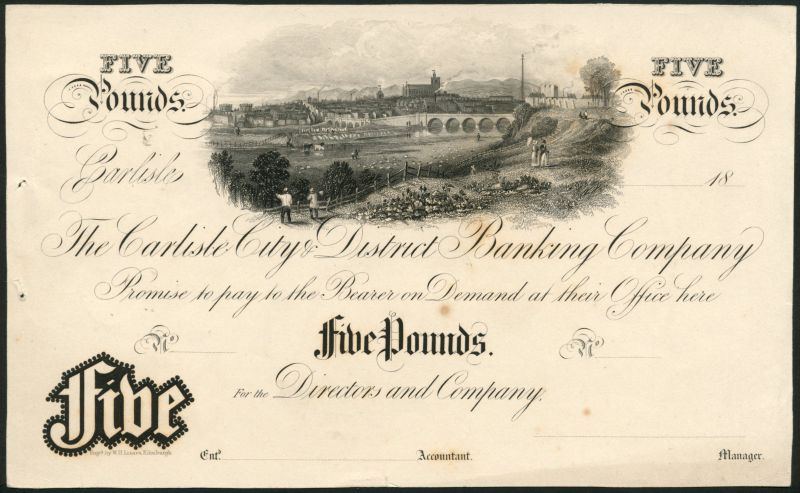 FIVE
Pounds.
FIVE
Pounds.
Carlisle 18
The Carlisle City & District Banking Company
Promise to pay to the Bearer on Demand at their Office here
No. Five Pounds. No.
For the Directors and Company.
Five
Engd. by W.H. Lizars, Edinburgh
Entd. Accountant. Manager.